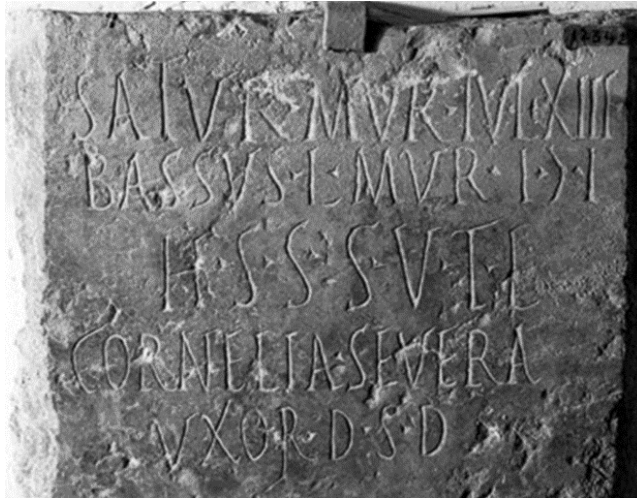 SATVR·MVR·IVL·XIII
BASSVS·L·MVR·I·Ɔ·I
H·S·S·S·V·T·L
CORNELIA·SEVERA
VXOR·D·S·D